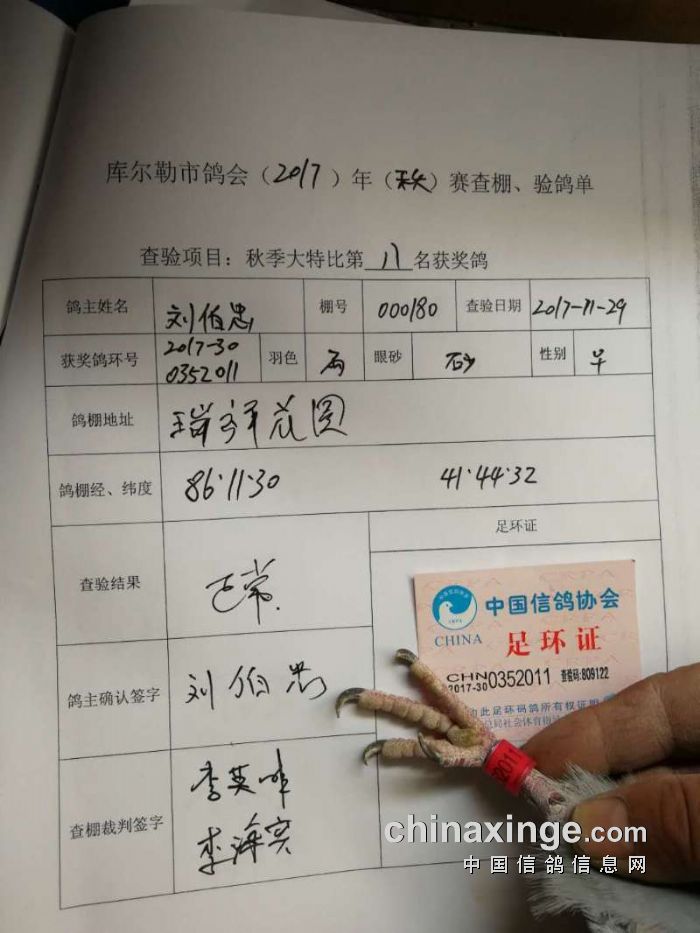 库尔勒市鸽会（2017）年（秋）赛查棚、验鸽单
查验项目：秋季大特比第 八 名获奖鸽
鸽主姓名 刘伯忠 棚号 000180 查验日期 2017-11-29
获奖鸽环号 2017-30 0352011 羽色 雨 眼砂 砂 性别
鸽棚地址 瑞祥花园
鸽棚经、纬度 86·11·30 41·44·32
足环证
查验结果 正常
中国信鸽协会
CHINA
足环证
CHN
2017-30 0352011 查验码:809122
此足环码鸽所有权证明
总局社会体育指
鸽主确认签字 刘伯忠
2011
查棚裁判签字 李英
李海宾
chinaxinge.com
中国信鸽信息网